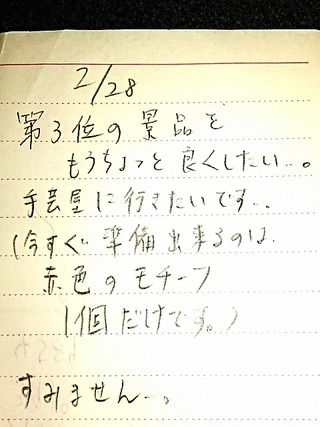 2/28
第3位の景品を
もうちょっと良くしたい…。
手芸屋に行きたいです…
(今すぐ準備出来るのは
赤色のモチーフ
1個だけです。)
すみません…。